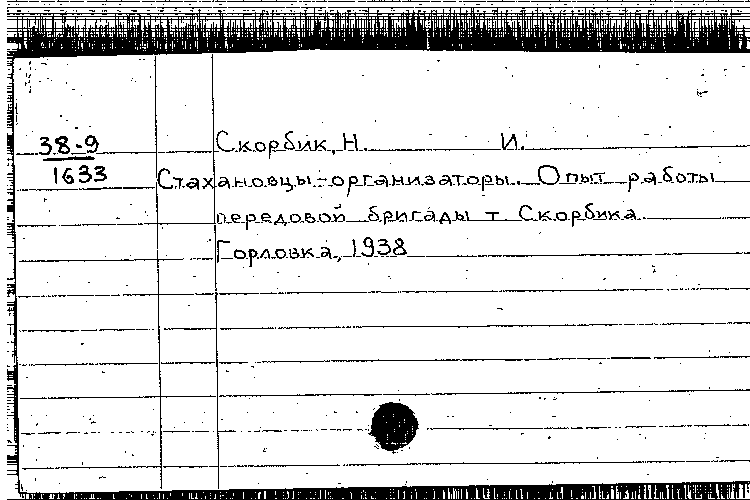 38-9
1633
Скорбик, Н. И.
Стахановцы-организаторы. Опыт работы
передовой бригады т. Скорбика.
Горловка, 1938